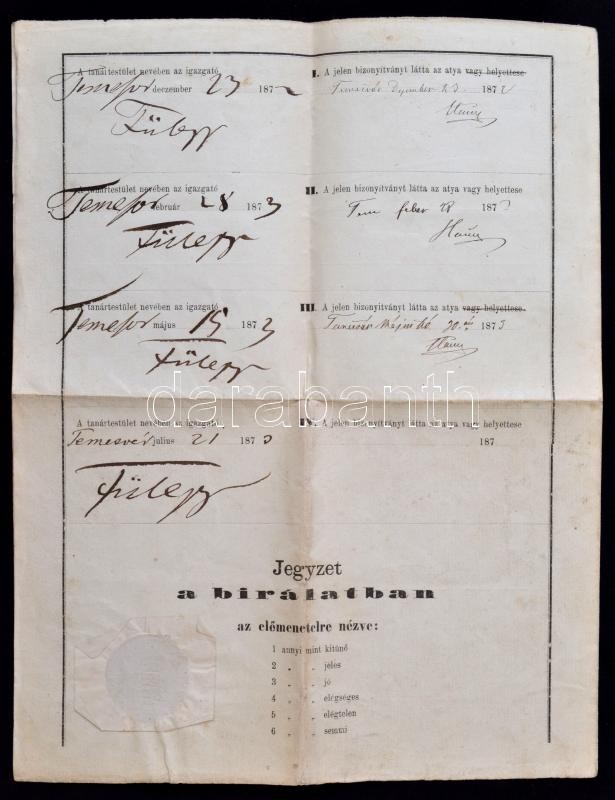 A tanártestület nevében az igazgató
Temesvár deczember 23 1872
Fülepp
I. A jelen bizonyítványt látta az atya vagy helyettese
Temesvár 23 1872
A tanártestület nevében az igazgató
Temesvár február 28 1873
Fülepp
II. A jelen bizonyítványt látta az atya vagy helyettese
Tem feber 28 1873
A tanártestület nevében az igazgató
Temesvár május 15 1873
Fülepp
III. A jelen bizonyítványt látta az atya vagy helyettese.
Temesvár 30 1873
A tanártestület nevében az igazgató
Temesvár julius 21 1873
Fülepp
IV. A jelen bizonyítványt látta az atya vagy helyettese
187
darabanth
Jegyzet
a birálatban
az előmenetelre nézve:
1 annyi mint kitünő
2 „ „ jeles
3 „ „ jó
4 „ „ elégséges
5 „ „ elégtelen
6 „ „ semmi